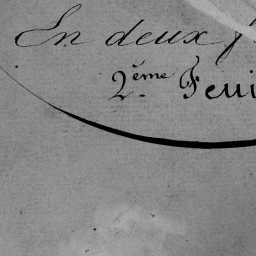 En deux f
2.ème Feui